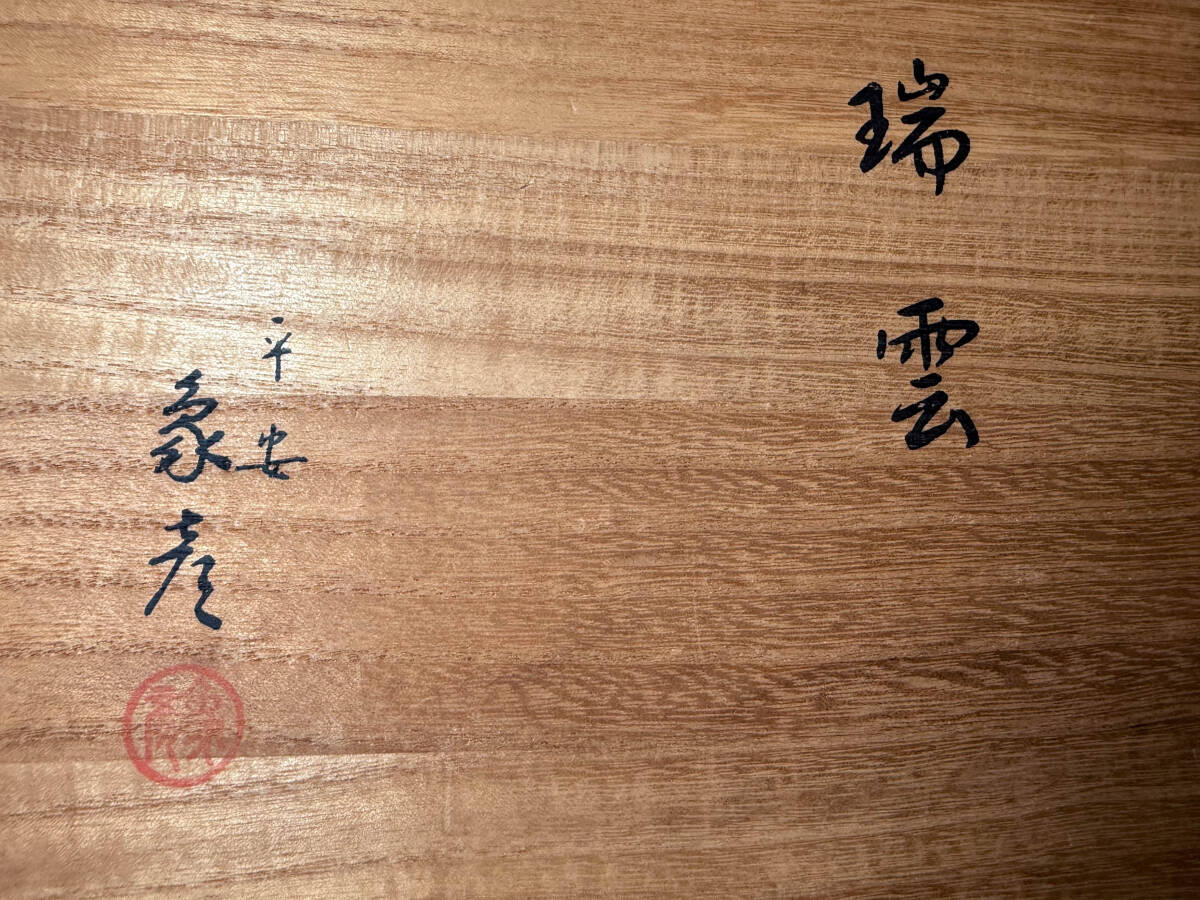 瑞雲
平安
象彦